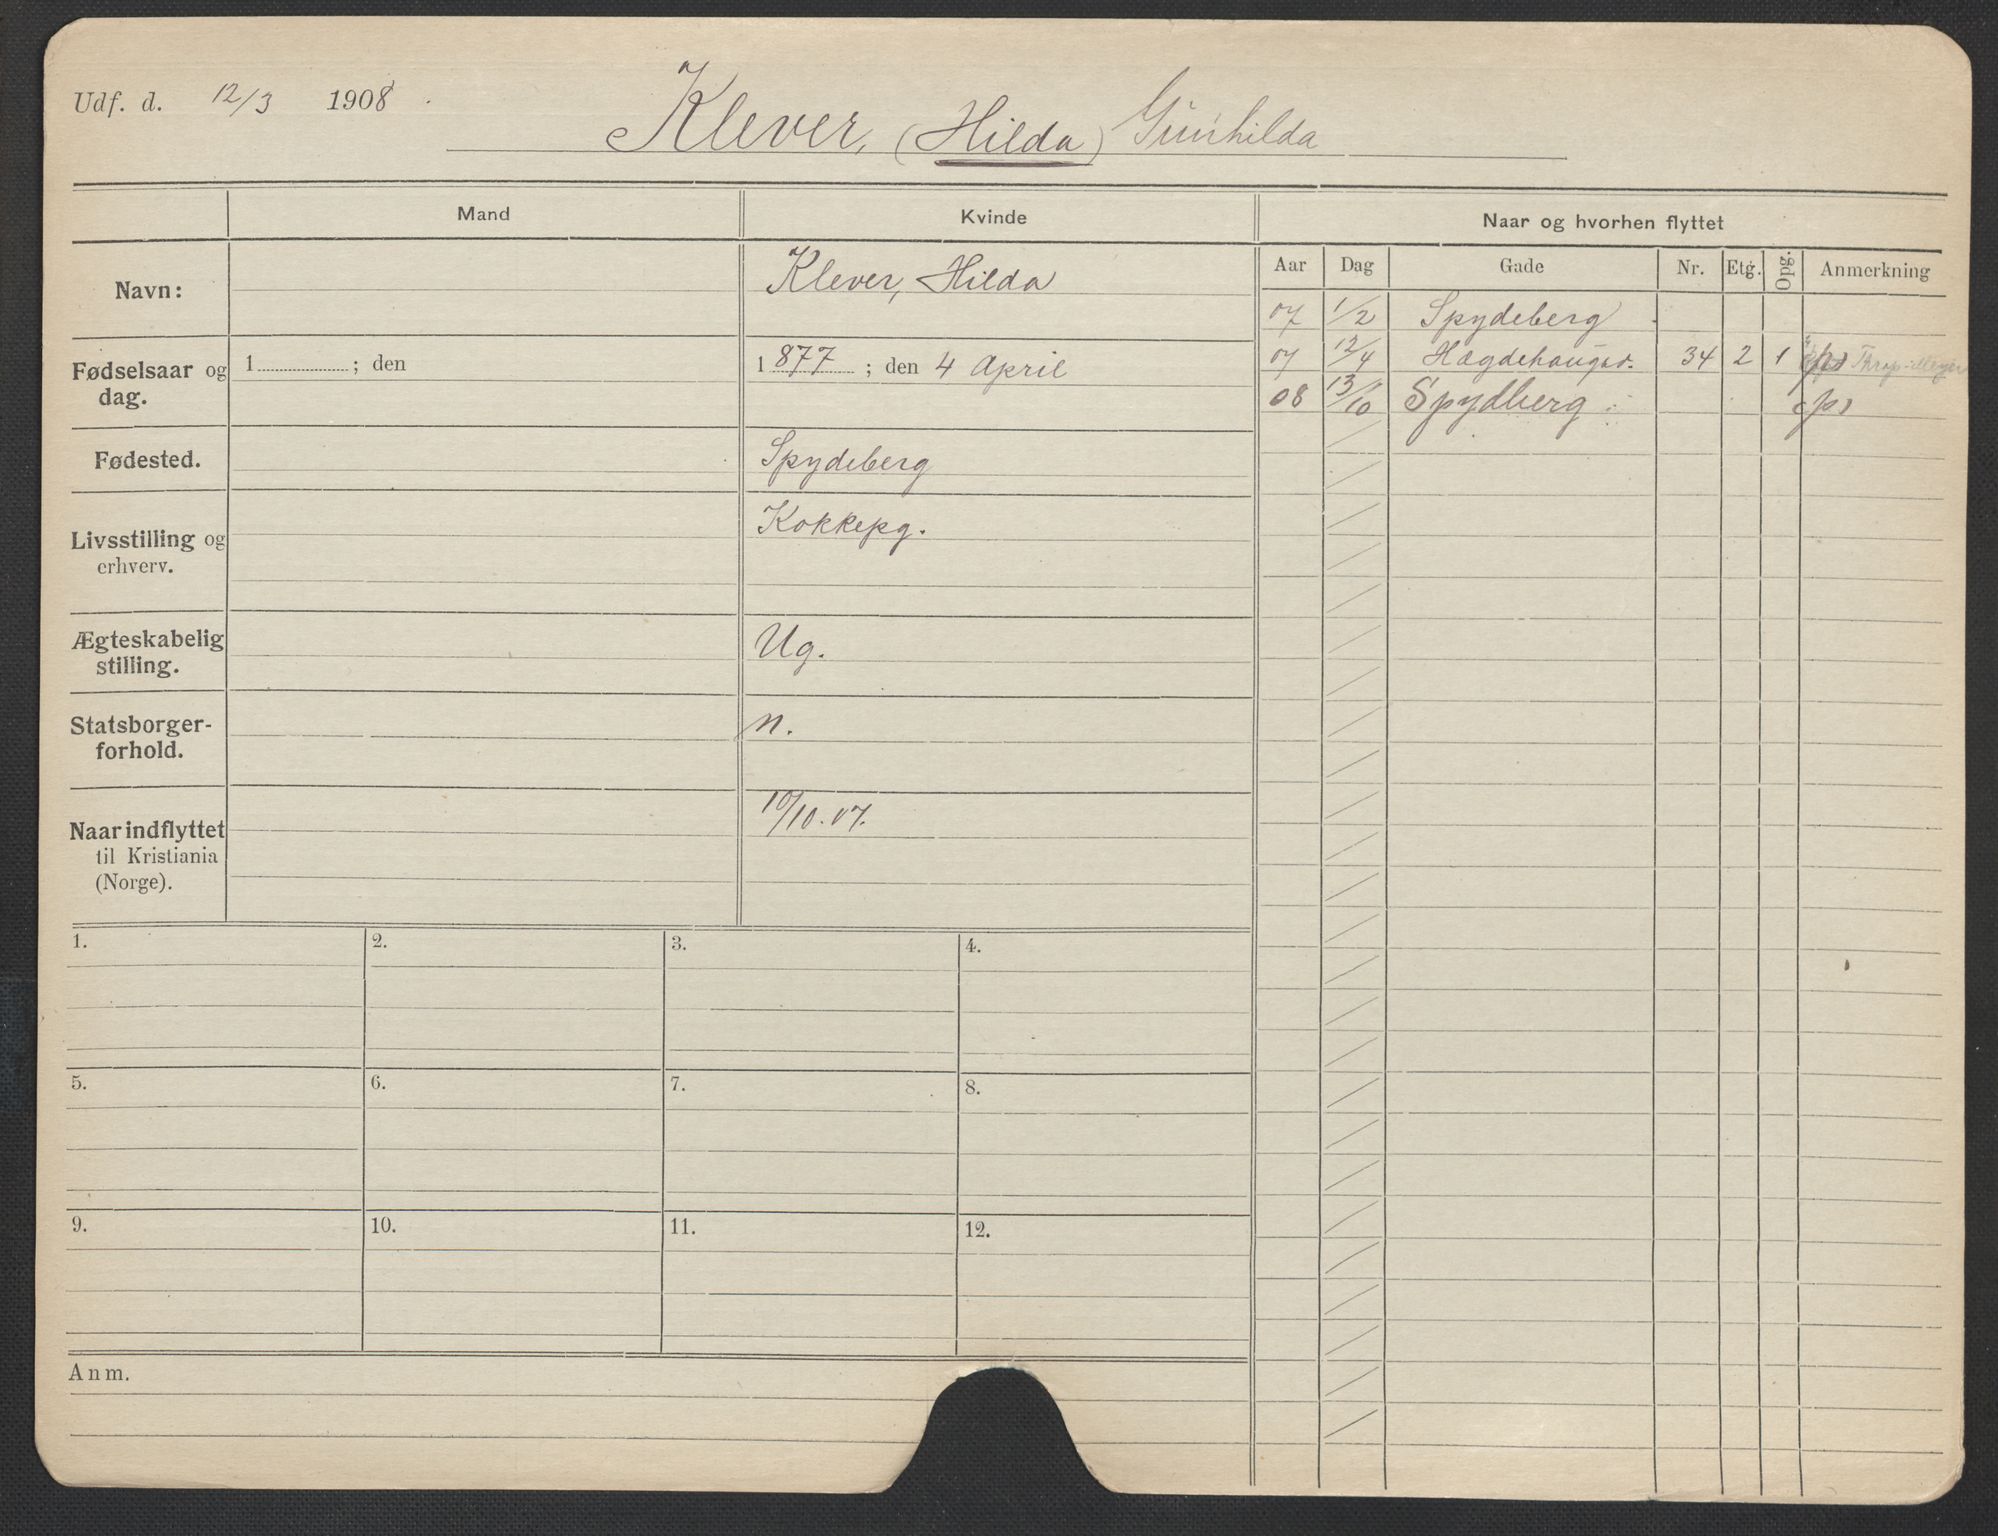 Udf. d. 12/3 1908.
Klever, (Hilda) Gunhilda
Mand
Kvinde
Naar og hvorhen flyttet
Navn:
Klever, Hilda
Fødselsaar og dag.
1 ; den
1 877 ; den 4 April
Fødested.
Spydeberg
Livsstilling og erhverv.
Kokkepg.
Ægteskabelig stilling.
Ug.
Statsborger-
forhold.
n.
Naar indflyttet
til Kristiania
(Norge).
10/10. 07.
Aar Dag Gade Nr. Etg. Opg. Anmerkning
07 1/2 Spydeberg
07 12/4 Hægdehaugsv. 34 2 1 Thrap-Meyer
08 13/10 Spydberg
1. 2. 3. 4.
5. 6. 7. 8.
9. 10. 11. 12.
Anm.